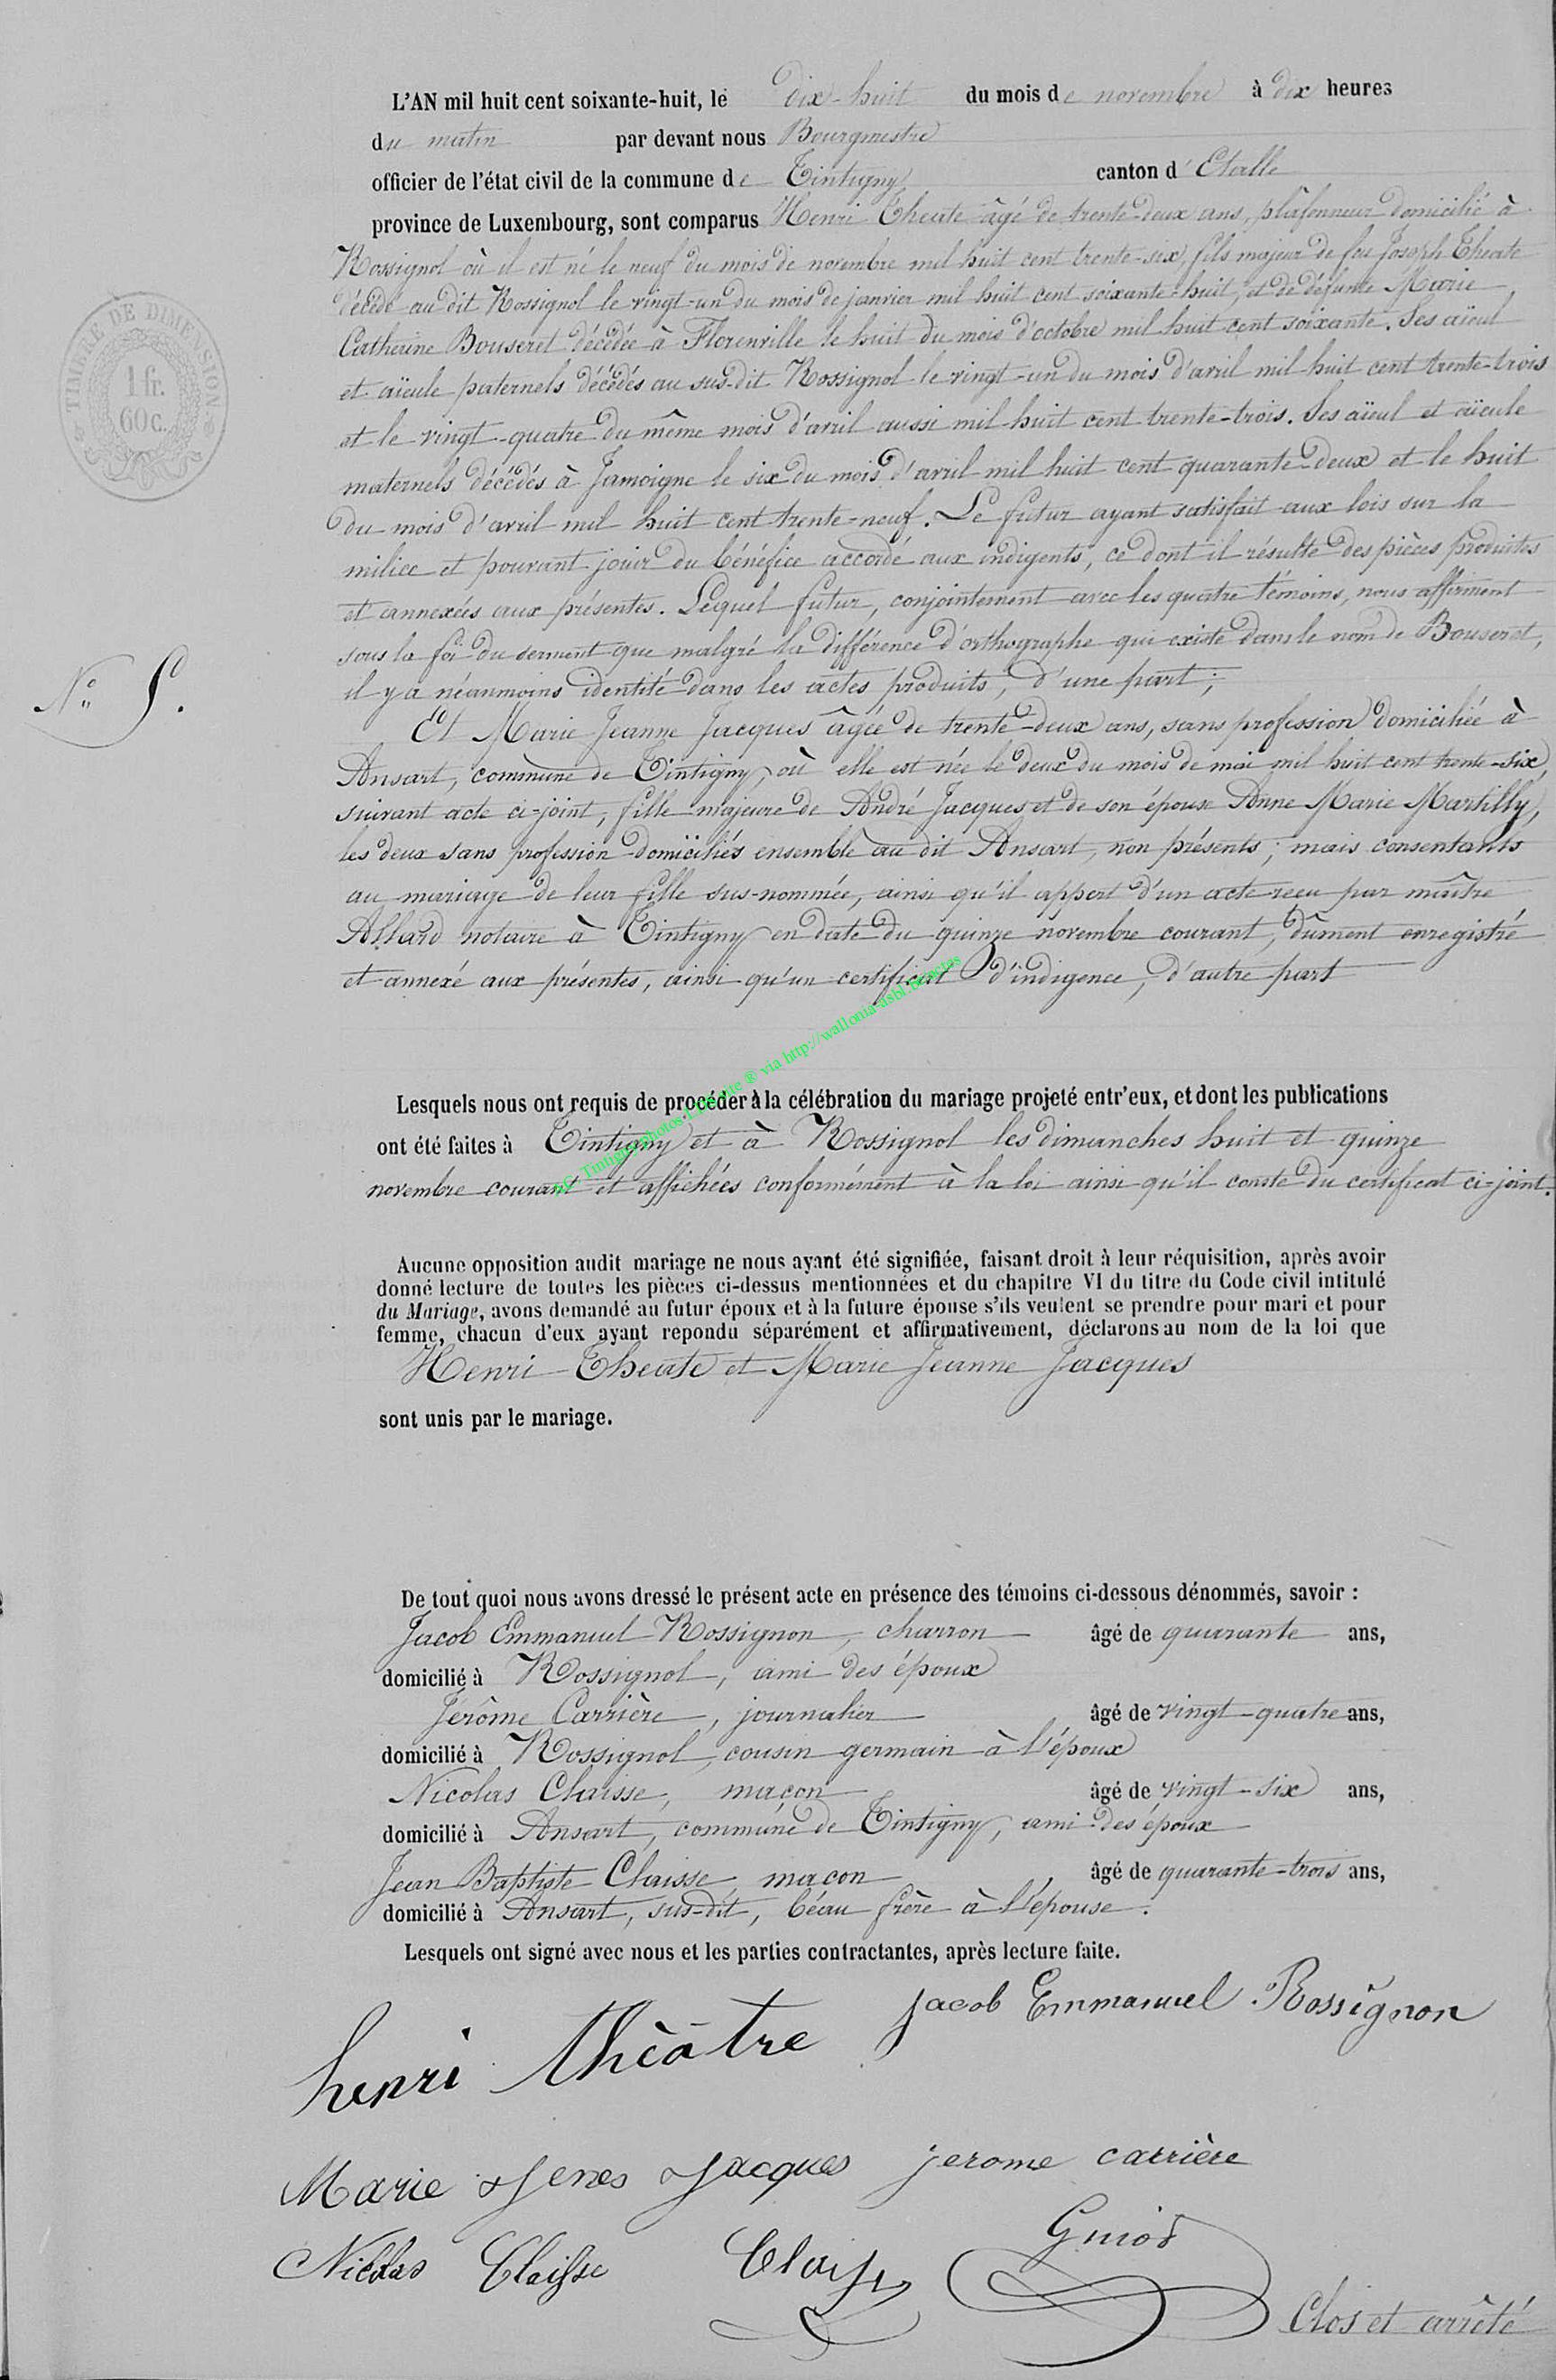 L'AN mil huit cent soixante-huit, le dix-huit du mois de novembre à dix heures
du matin par devant nous Bourgmestre
officier de l'état civil de la commune de Tintigny canton d'Etalle
province de Luxembourg, sont comparus Henri Theate âgé de trente-deux ans, plafonneur domicilié à
Rossignol où il est né le neuf du mois de novembre mil huit cent trente-six, fils majeur de feu Joseph Theate
décédé au dit Rossignol le vingt-un du mois de janvier mil huit cent soixante-huit, et de défunte Marie
Catherine Bouseret décédée à Florenville le huit du mois d'octobre mil huit cent soixante. Ses aïeul
et aïeule paternels décédés au sus-dit Rossignol le vingt-un du mois d'avril mil huit cent trente-trois
et le vingt-quatre du même mois d'avril aussi mil huit cent trente-trois. Ses aïeul et aïeule
maternels décédés à Jamoigne le six du mois d'avril mil huit cent quarante-deux et le huit
du mois d'avril mil huit cent trente-neuf. Le futur ayant satisfait aux lois sur la
milice et pouvant jouir du bénéfice accordé aux indigents, ce dont il résulte des pièces produites
et annexées aux présentes. Lequel futur, conjointement avec les quatre témoins, nous affirment
sous la foi du serment que malgré la différence d'orthographe qui existe dans le nom de Bouseret,
il y a néanmoins identité dans les actes produits, d'une part;
Et Marie Jeanne Jacques âgée de trente-deux ans, sans profession domiciliée à
Ansart, commune de Tintigny, où elle est née le deux du mois de mai mil huit cent trente-six,
suivant acte ci-joint, fille majeure de André Jacques et de son épouse Anne Marie Martilly,
les deux sans profession domiciliés ensemble au dit Ansart, non présents; mais consentants
au mariage de leur fille sus-nommée, ainsi qu'il appert d'un acte reçu par maître
Allard notaire à Tintigny en date du quinze novembre courant, dûment enregistré
et annexé aux présentes, ainsi qu'un certificat d'indigence, d'autre part
TIMBRE DE DIMENSION
1 fr.
60 c.
N° 5.
Lesquels nous ont requis de procéder à la célébration du mariage projeté entr'eux, et dont les publications
ont été faites à Tintigny et à Rossignol les dimanches huit et quinze
novembre courant et affichées conformément à la loi ainsi qu'il conste du certificat ci-joint.
via http://wallonia-asbl.be/actes
Aucune opposition audit mariage ne nous ayant été signifiée, faisant droit à leur réquisition, après avoir
donné lecture de toutes les pièces ci-dessus mentionnées et du chapitre VI du titre du Code civil intitulé
du Mariage, avons demandé au futur époux et à la future épouse s'ils veulent se prendre pour mari et pour
femme, chacun d'eux ayant repondu séparément et affirmativement, déclarons au nom de la loi que
Henri Theate et Marie Jeanne Jacques
sont unis par le mariage.
De tout quoi nous avons dressé le présent acte en présence des témoins ci-dessous dénommés, savoir :
Jacob Emmanuel Rossignon, charron âgé de quarante ans,
domicilié à Rossignol, ami des époux
Jérôme Carrière, journalier âgé de vingt-quatre ans,
domicilié à Rossignol, cousin germain à l'époux
Nicolas Claisse, maçon âgé de vingt-six ans,
domicilié à Ansart, commune de Tintigny, ami des époux
Jean Baptiste Claisse, maçon âgé de quarante-trois ans,
domicilié à Ansart, sus-dit, beau frère à l'épouse.
Lesquels ont signé avec nous et les parties contractantes, après lecture faite.
jacob Emmanuel Rossignon
henri thèâtre
Marie Jenes Jacques jerome carrière
Nicolas Claisse Claisse Guiot
Clos et arrêté